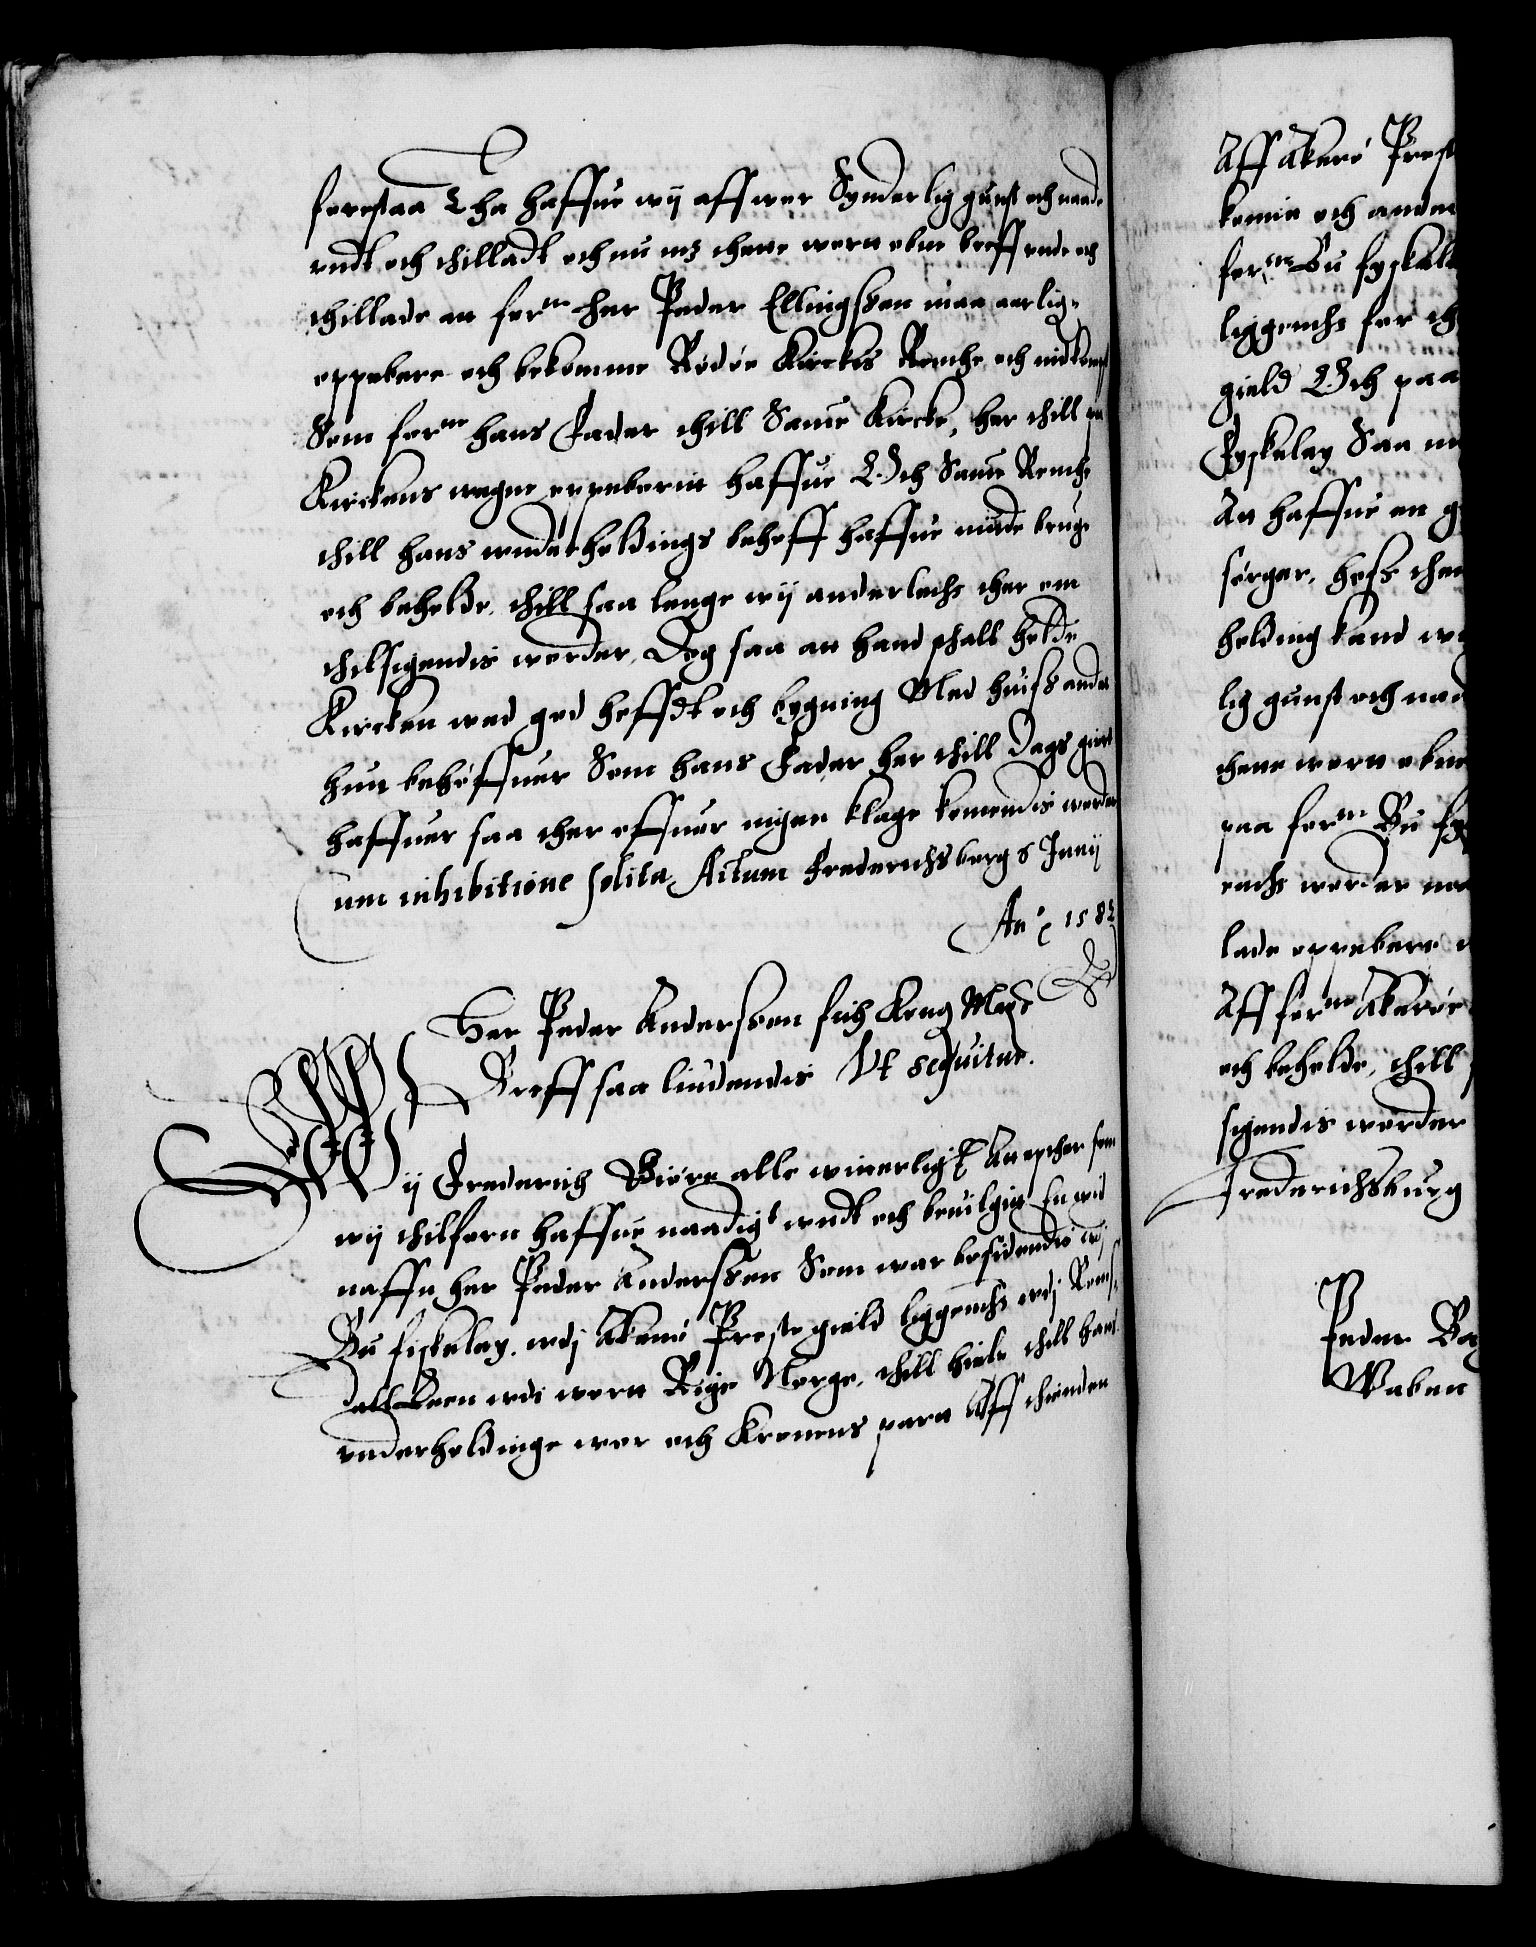 forestaa Tha haffue wij aff wor Synderlig gunst och naade
vndt och thilladt och nu mz thette wortt obne breff vnde och
thillade att for^ne her Peder Ellingssen maa aarligen
oppebere och bekomme Rødøe Kirckes Renthe och indkompst
Som for^ne hans Fader thill Samme Kircke, her thill paa
Kirckens wegne oppeborit haffue Och Samme Renthe
thill hans vnderholdings behoff haffue niude bruge
och beholde, thill saa lenge wij anderledes ther om
thilsigendis worder, Dog saa att hand schall holde
Kircken wed god hefftdt och bygning Med huis anden
hun behøffuer Som hans Fader her thill dags giort
haffuer saa ther offuer ingen klage komendis worder
Cum inhibitione solita, Actum Frederichsborg 8 Junij
An^o 1582
Her Peder Anderssen fich Kong Mayts
Breff saa liudendis Vt sequitur.
Wij Frederich Giøre alle witterligt At epther som
wij thilforn haffue naadigst vndt och beuilget En wid
naffn her Peder Anderssen Som war besidendis wdj
Bu fiskeley, wdj Akerø Prestegield liggendis wdj Roms
dallen wdi wort Rige Norge, thill hielp thill hans
vnderholdinge wor och Kronens part Aff thienden
Aff Akerø Prest
komme och anden
for^ne Bu fyskele
liggendis for th
gield Och paa
Fyskeley Saa m
At haffue en g
sørger, hoss then
holding kand w
lig gunst och naa
thette wortt obne
paa for^ne Bu fy
endis worder na
lade oppebere
Aff for^ne Akerøe
och beholde, thill
sigendis worder
Frederichsburg
Peder Ba
Waben